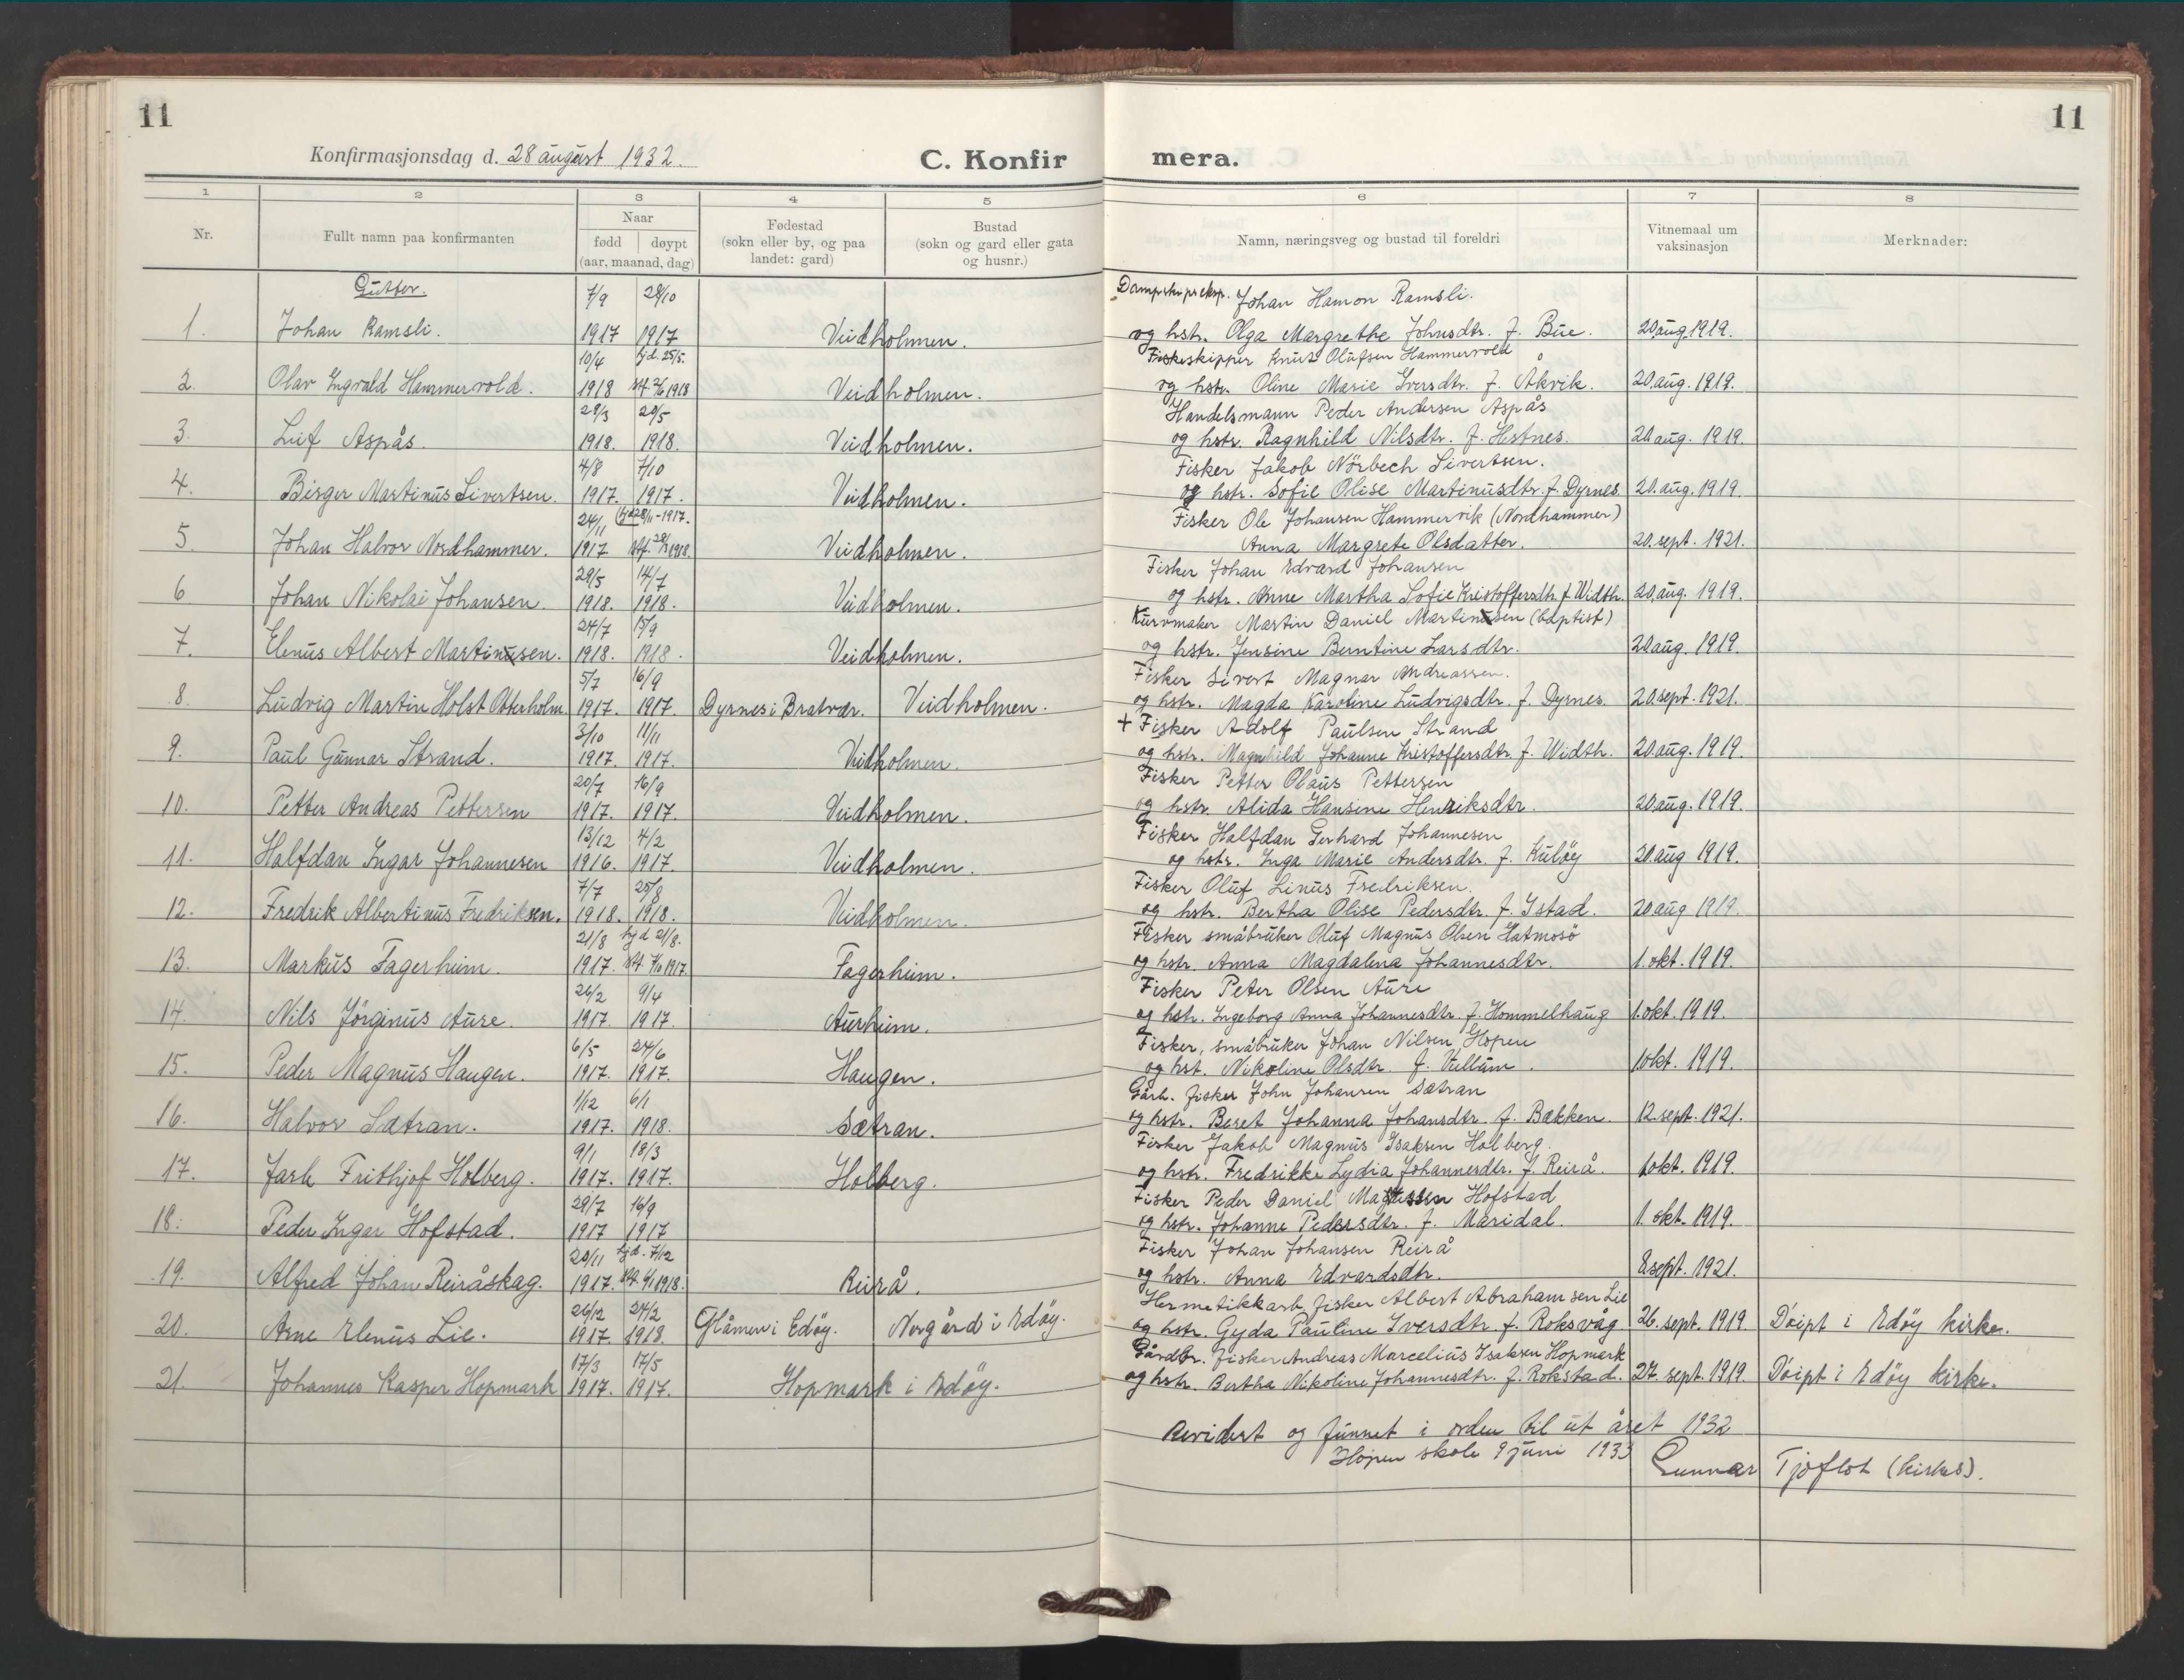 11
11
Konfirmasjonsdag d. 28 august 1932.
C. Konfir
mera.
1 2 3 4 5 6 7 8
Nr.
Fullt namn paa konfirmanten
Naar
fødd | døypt
(aar, maanad, dag)
Fødestad
(sokn eller by, og paa
landet: gard)
Bustad
(sokn og gard eller gata
og husnr.)
Namn, næringsveg og bustad til foreldri
Vitnemaal um
vaksinasjon
Merknader:
Gutter.
7/9 28/10 Dampskipseksp. Johan Hamon Ramsli.
1. Johan Ramsli. 1917 1917 Veidholmen. og hstr. Olga Margrethe Johnsdtr. f. Bue. 20 aug. 1919.
10/4 hjd. 25/5. Fiskeskipper Knut Olufsen Hammervold
2. Olav Ingvald Hammervold. 1918 1918 Veidholmen. og hstr. Oline Marie Iversdtr. f. Åkvik. 20. aug. 1919.
29/3 20/5 Handelsmann Peder Andersen Aspås
3. Leif Aspås. 1918. 1918. Veidholmen. og hstr. Ragnhild Nilsdtr. f. Hestnes. 20 aug. 1919.
4/8 7/10 Fisker Jakob Nörbech Sivertsen.
4. Birger Martinus Sivertsen. 1917. 1917. Veidholmen. og hstr. Sofie Olise Martinusdtr. f. Dyrnes. 20. aug. 1919.
24/11 hjd 28/11-1917. Fisker Ole Johansen Hammervik (Nordhammer)
5. Johan Halvor Nordhammer. 1917 1918. Veidholmen. Anna Margrete Olsdatter. 20. sept. 1921.
29/5 14/7 Fisker Johan Edvard Johansen
6 Johan Nikolai Johansen. 1918. 1918. Veidholmen. og hstr. Anne Martha Sofie Kristoffersdtr. f. Width. 20. aug. 1919.
24/7 15/9 Kurvmaker Martin Daniel Martinsen (baptist)
7. Elenus Albert Martinsen. 1918. 1918. Veidholmen. og hstr. Jensine Berntine Larsdtr. 20 aug. 1919.
5/7 16/9 Fisker Sivert Magnar Andreassen.
8. Ludvig Martin Holst Otterholm 1917. 1917. Dyrnes i Bratvær. Veidholmen. og hstr. Magda Karoline Ludvigsdtr. f. Dyrnes. 20. sept. 1921.
3/10 11/11 + Fisker Adolf Paulsen Strand
9. Paul Gunnar Strand. 1917. 1917. Veidholmen. og hstr. Magnhild Johanne Kristoffersdtr. f. Width. 20. aug. 1919.
20/7 16/9 Fisker Petter Olaus Pettersen
10. Petter Andreas Pettersen 1917. 1917. Veidholmen. og hstr. Alida Hansine Henriksdtr. 20 aug. 1919.
13/12 4/2 Fisker Halfdan Gerhard Johannesen
11. Halfdan Ingar Johannesen 1916. 1917. Veidholmen. og hstr. Inga Marie Andersdtr. f. Kuløy 20. aug 1919.
7/7 25/8 Fisker Oluf Linus Fredriksen.
12. Fredrik Albertinus Fredriksen. 1918. 1918. Veidholmen. og hstr. Bertha Olise Pedersdtr. f. Istad. 20 aug 1919.
21/8 hjd 21/8. Fisker småbruker Oluf Magnus Olsen Hatmosö
13. Markus Fagerheim. 1917. 1917. Fagerheim. og hstr. Anna Magdalena Johannesdtr. 1. okt. 1919.
26/2 9/4 Fisker Peter Olsen Aure
14. Nils Jörginus Aure. 1917. 1917. Aurheim. og hstr. Ingeborg Anna Johannesdtr. f. Hommelhaug 1. okt. 1919.
6/5 24/6 Fisker, småbruker Johan Nilsen Hopen
15. Peder Magnus Haugen. 1917. 1917. Haugen. og hst. Nikoline Olsdtr. f. Vullum. 1 okt. 1919.
1/12 6/1 Gårb. fisker John Johansen Sætran
16. Halvor Sætran. 1917. 1918. Sætran. og hstr. Beret Johanna Johansdtr. f. Bækken. 12. sept. 1921.
9/1 18/3 Fisker Jakob Magnus Isaksen Holberg.
17. Jarle Frithjof Holberg. 1917. 1917. Holberg. og hstr. Fredrikke Lydia Johannesdtr. f. Reirå. 1 okt. 1919.
29/7 16/9 Fisker Peder Daniel Hofstad
18. Peder Ingar Hofstad. 1917 1917 og hstr. Johanne Pedersdtr. f. Maridal. 1. okt. 1919.
20/11 hjd. 7/12 Fisker Johan Johansen Reirå
19. Alfred Johan Reiråskag. 1917. 1918. Reirå. og hstr. Anna Edvardsdtr. 8 sept. 1921.
26/12 24/2 Hermetikkarb. fisker Albert Abrahamsen Lie
20. Arne Elenus Lie. 1917 1918. Glåmen i Edöy. Norgård i Edöy. og hstr. Gyda Pauline Iversdtr. f. Roksvåg. 26. sept. 1919 Döipt i Edöy kirke.
17/3 17/5 Gårdbr. fisker Andreas Marcelius Isaksen Hopmark
21. Johannes Kasper Hopmark 1917. 1917. Hopmark i Edöy. og hstr. Bertha Nikoline Johannesdtr. f. Rokstad. 27. sept. 1919. Döipt i Edöy kirke.
Revidert og funnet i orden til ut året 1932
Hopen skole 9 juni 1933 Gunnar Tjøflot (kirkes).